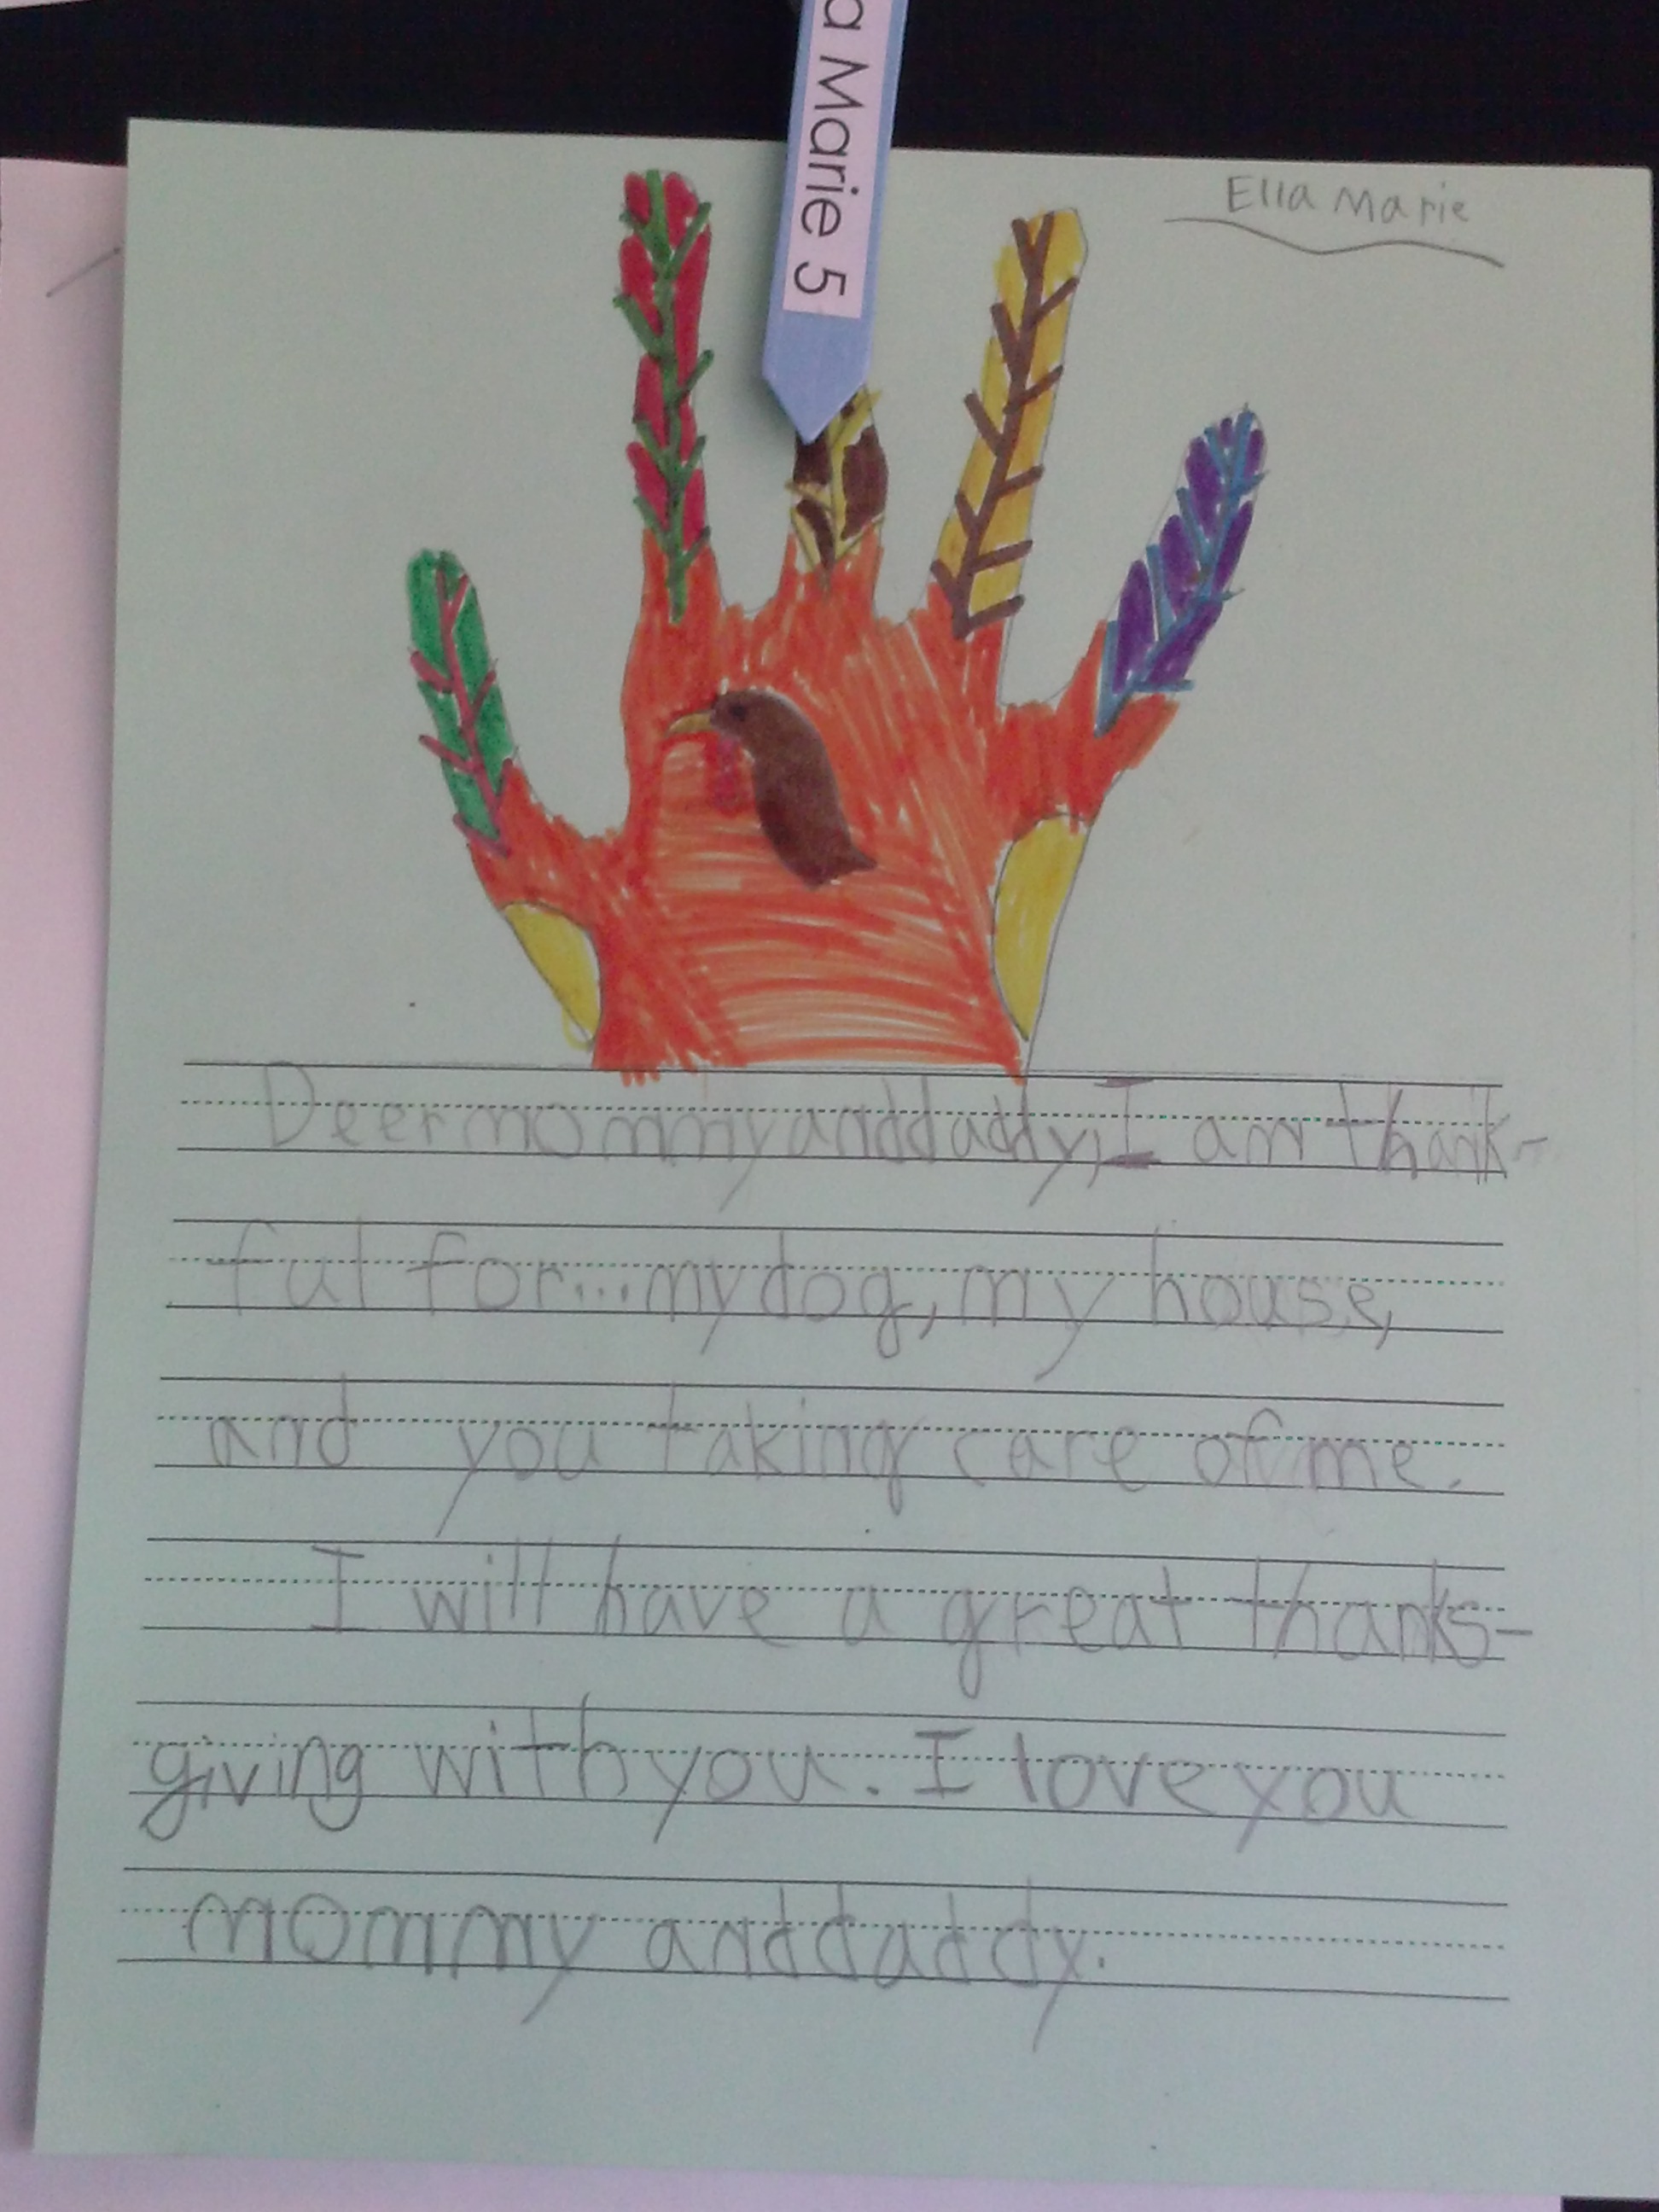 a Marie 5
Ella Marie
Deer mommy and daddy, I am thank-
ful for... my dog, my house,
and you taking care of me.
I will have a great thanks-
giving with you. I love you
mommy and daddy.